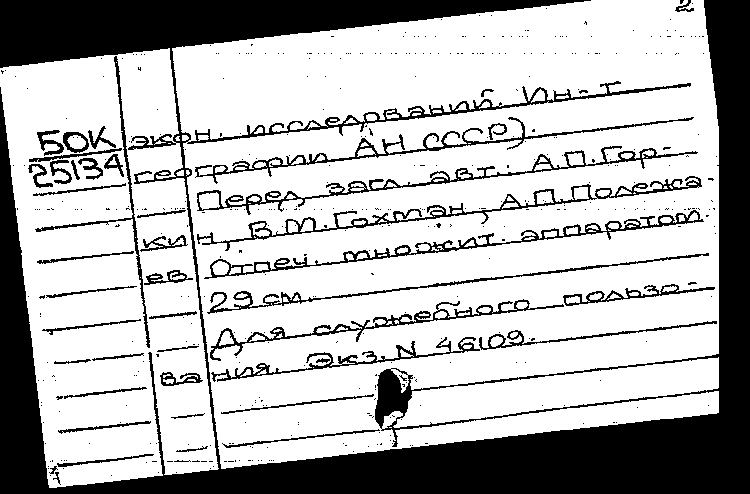 2
50К экон. исследований. Ин-т
25134 географии АН СССР).
Перед загл. авт.: А.П.Гор-
кин, В.М.Гохман, А.П.Полежа-
ев Отпеч. множит. аппаратом
29 см.
Для служебного пользо-
вания. Экз. N 46109.